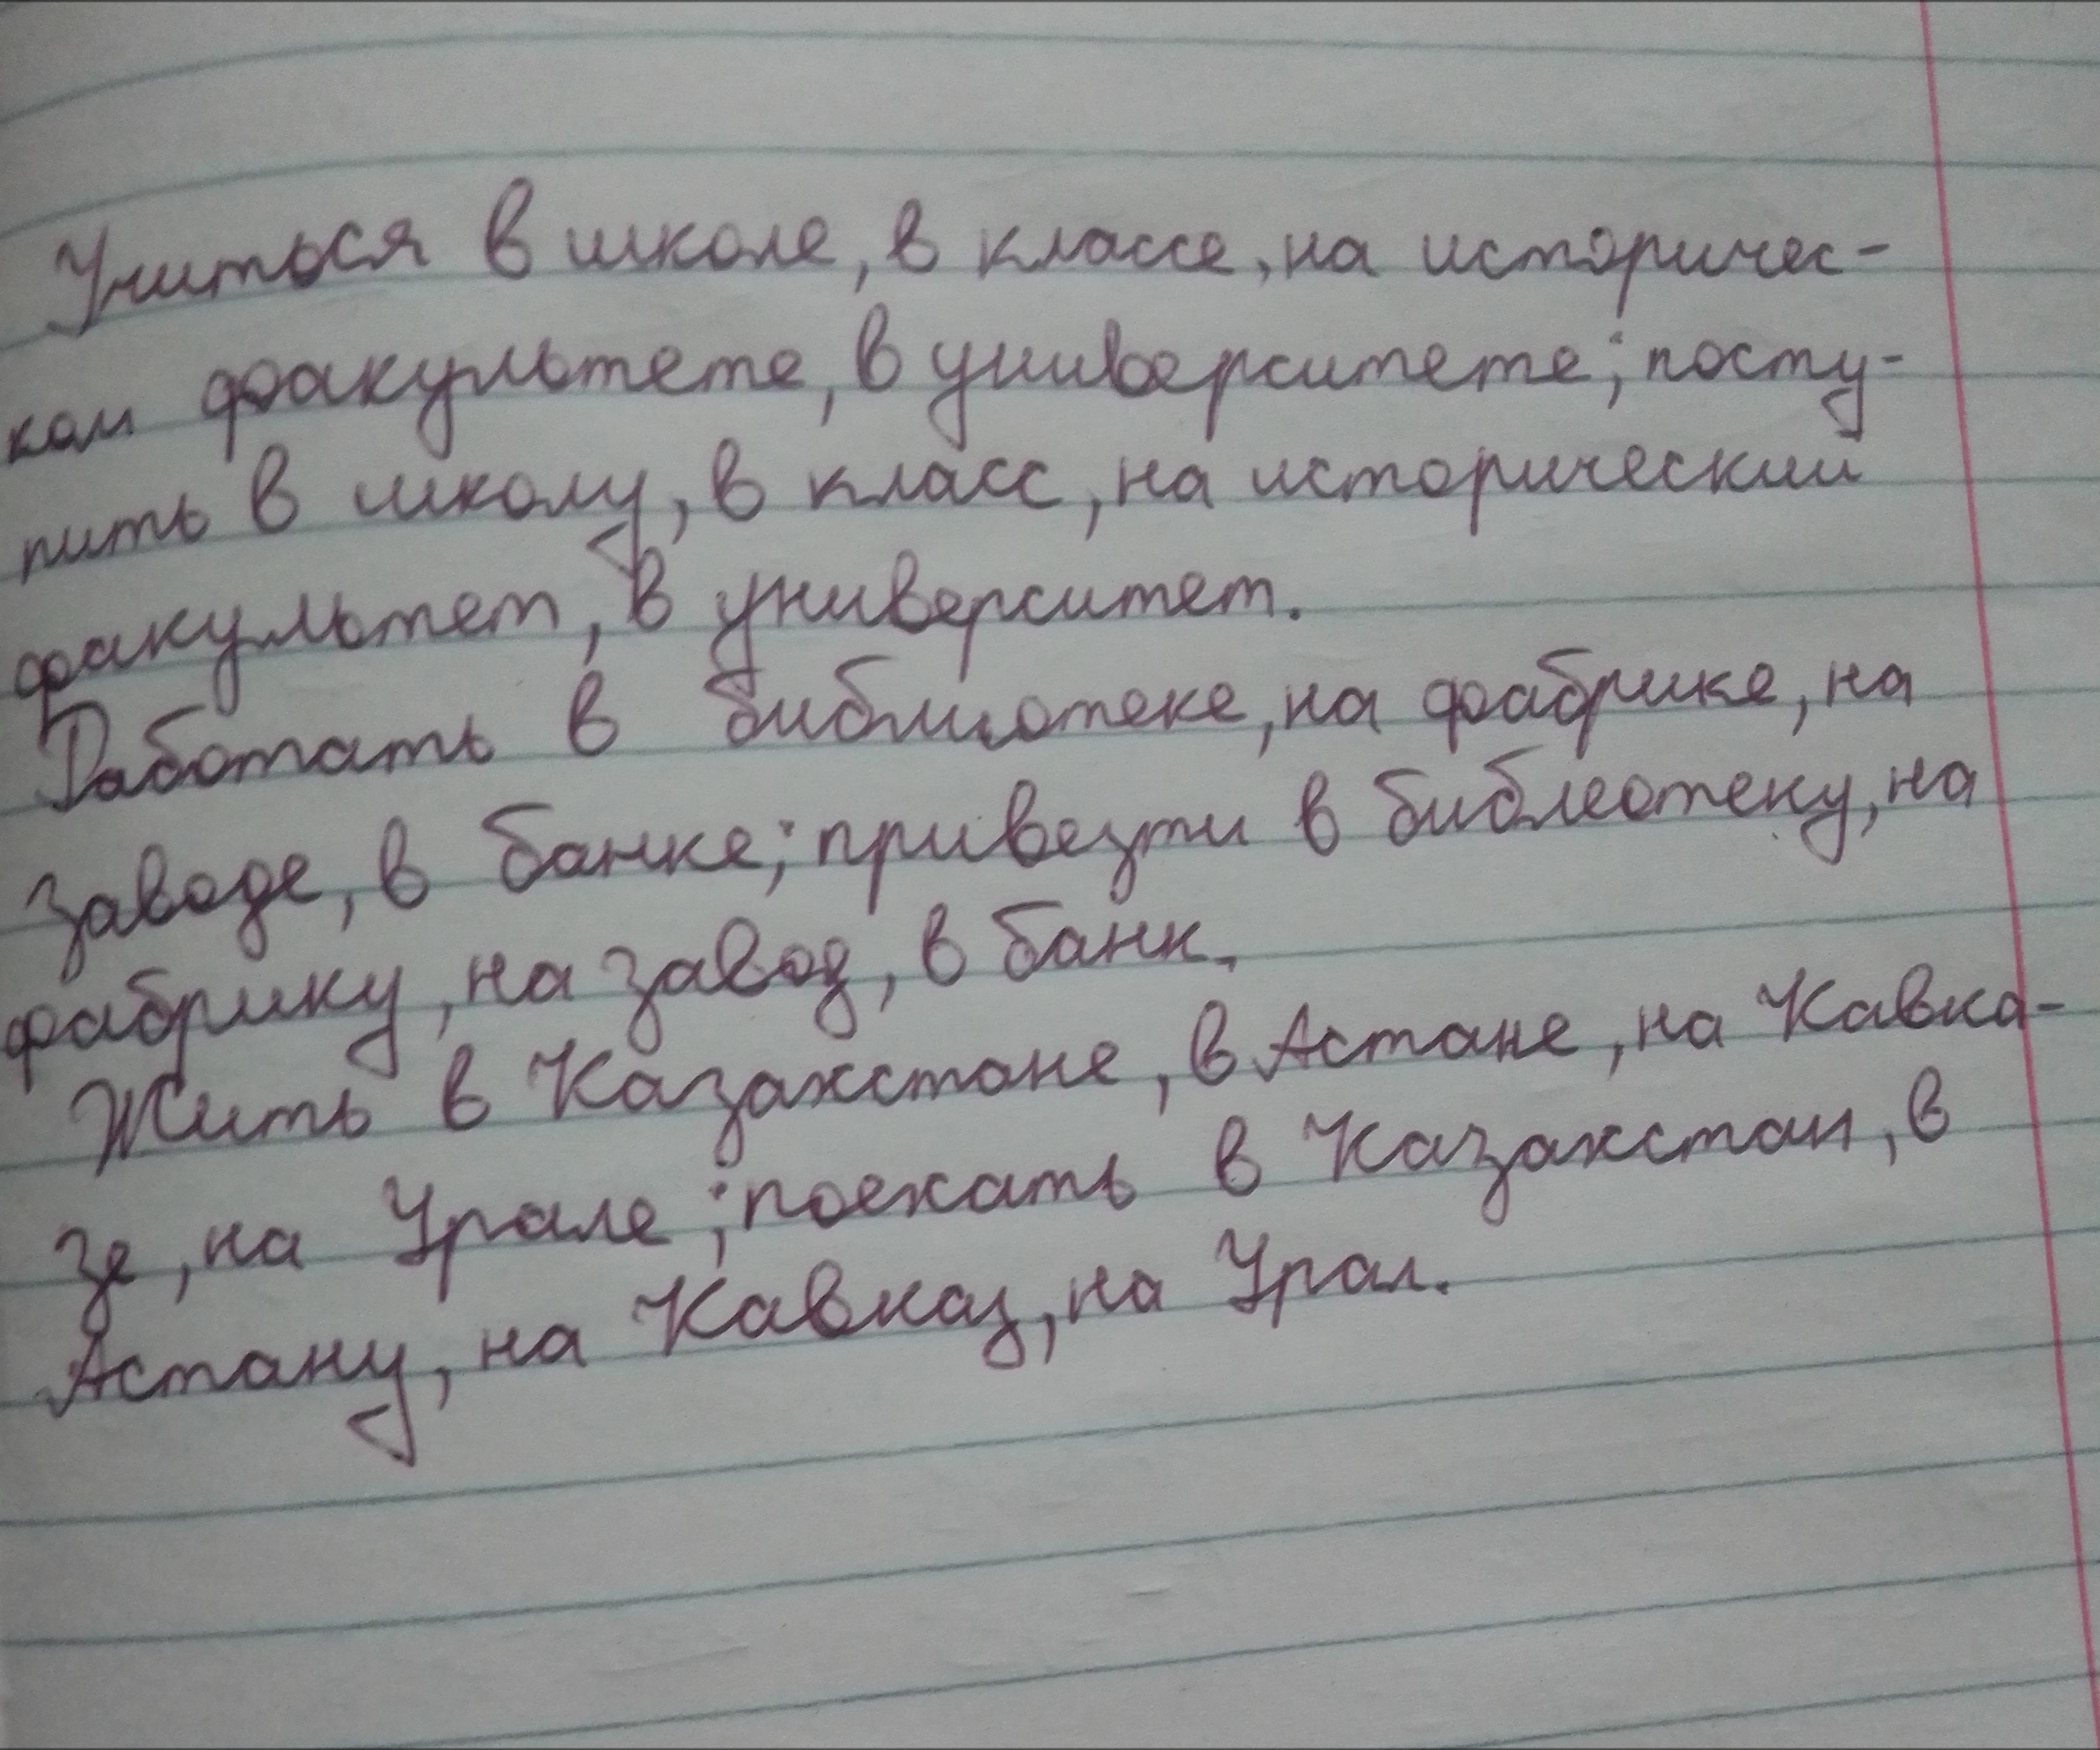 Учиться в школе, в классе, на историчес-
ком факультете, в университете; посту-
пить в школу, в класс, на исторический
факультет, в университет.
Работать в библиотеке, на фабрике, на
заводе, в банке; привезти в библеотеку, на
фабрику, на завод, в банк.
Жить в Казахстане, в Астане, на Кавка-
зе, на Урале; поехать в Казахстан, в
Астану, на Кавказ, на Урал.